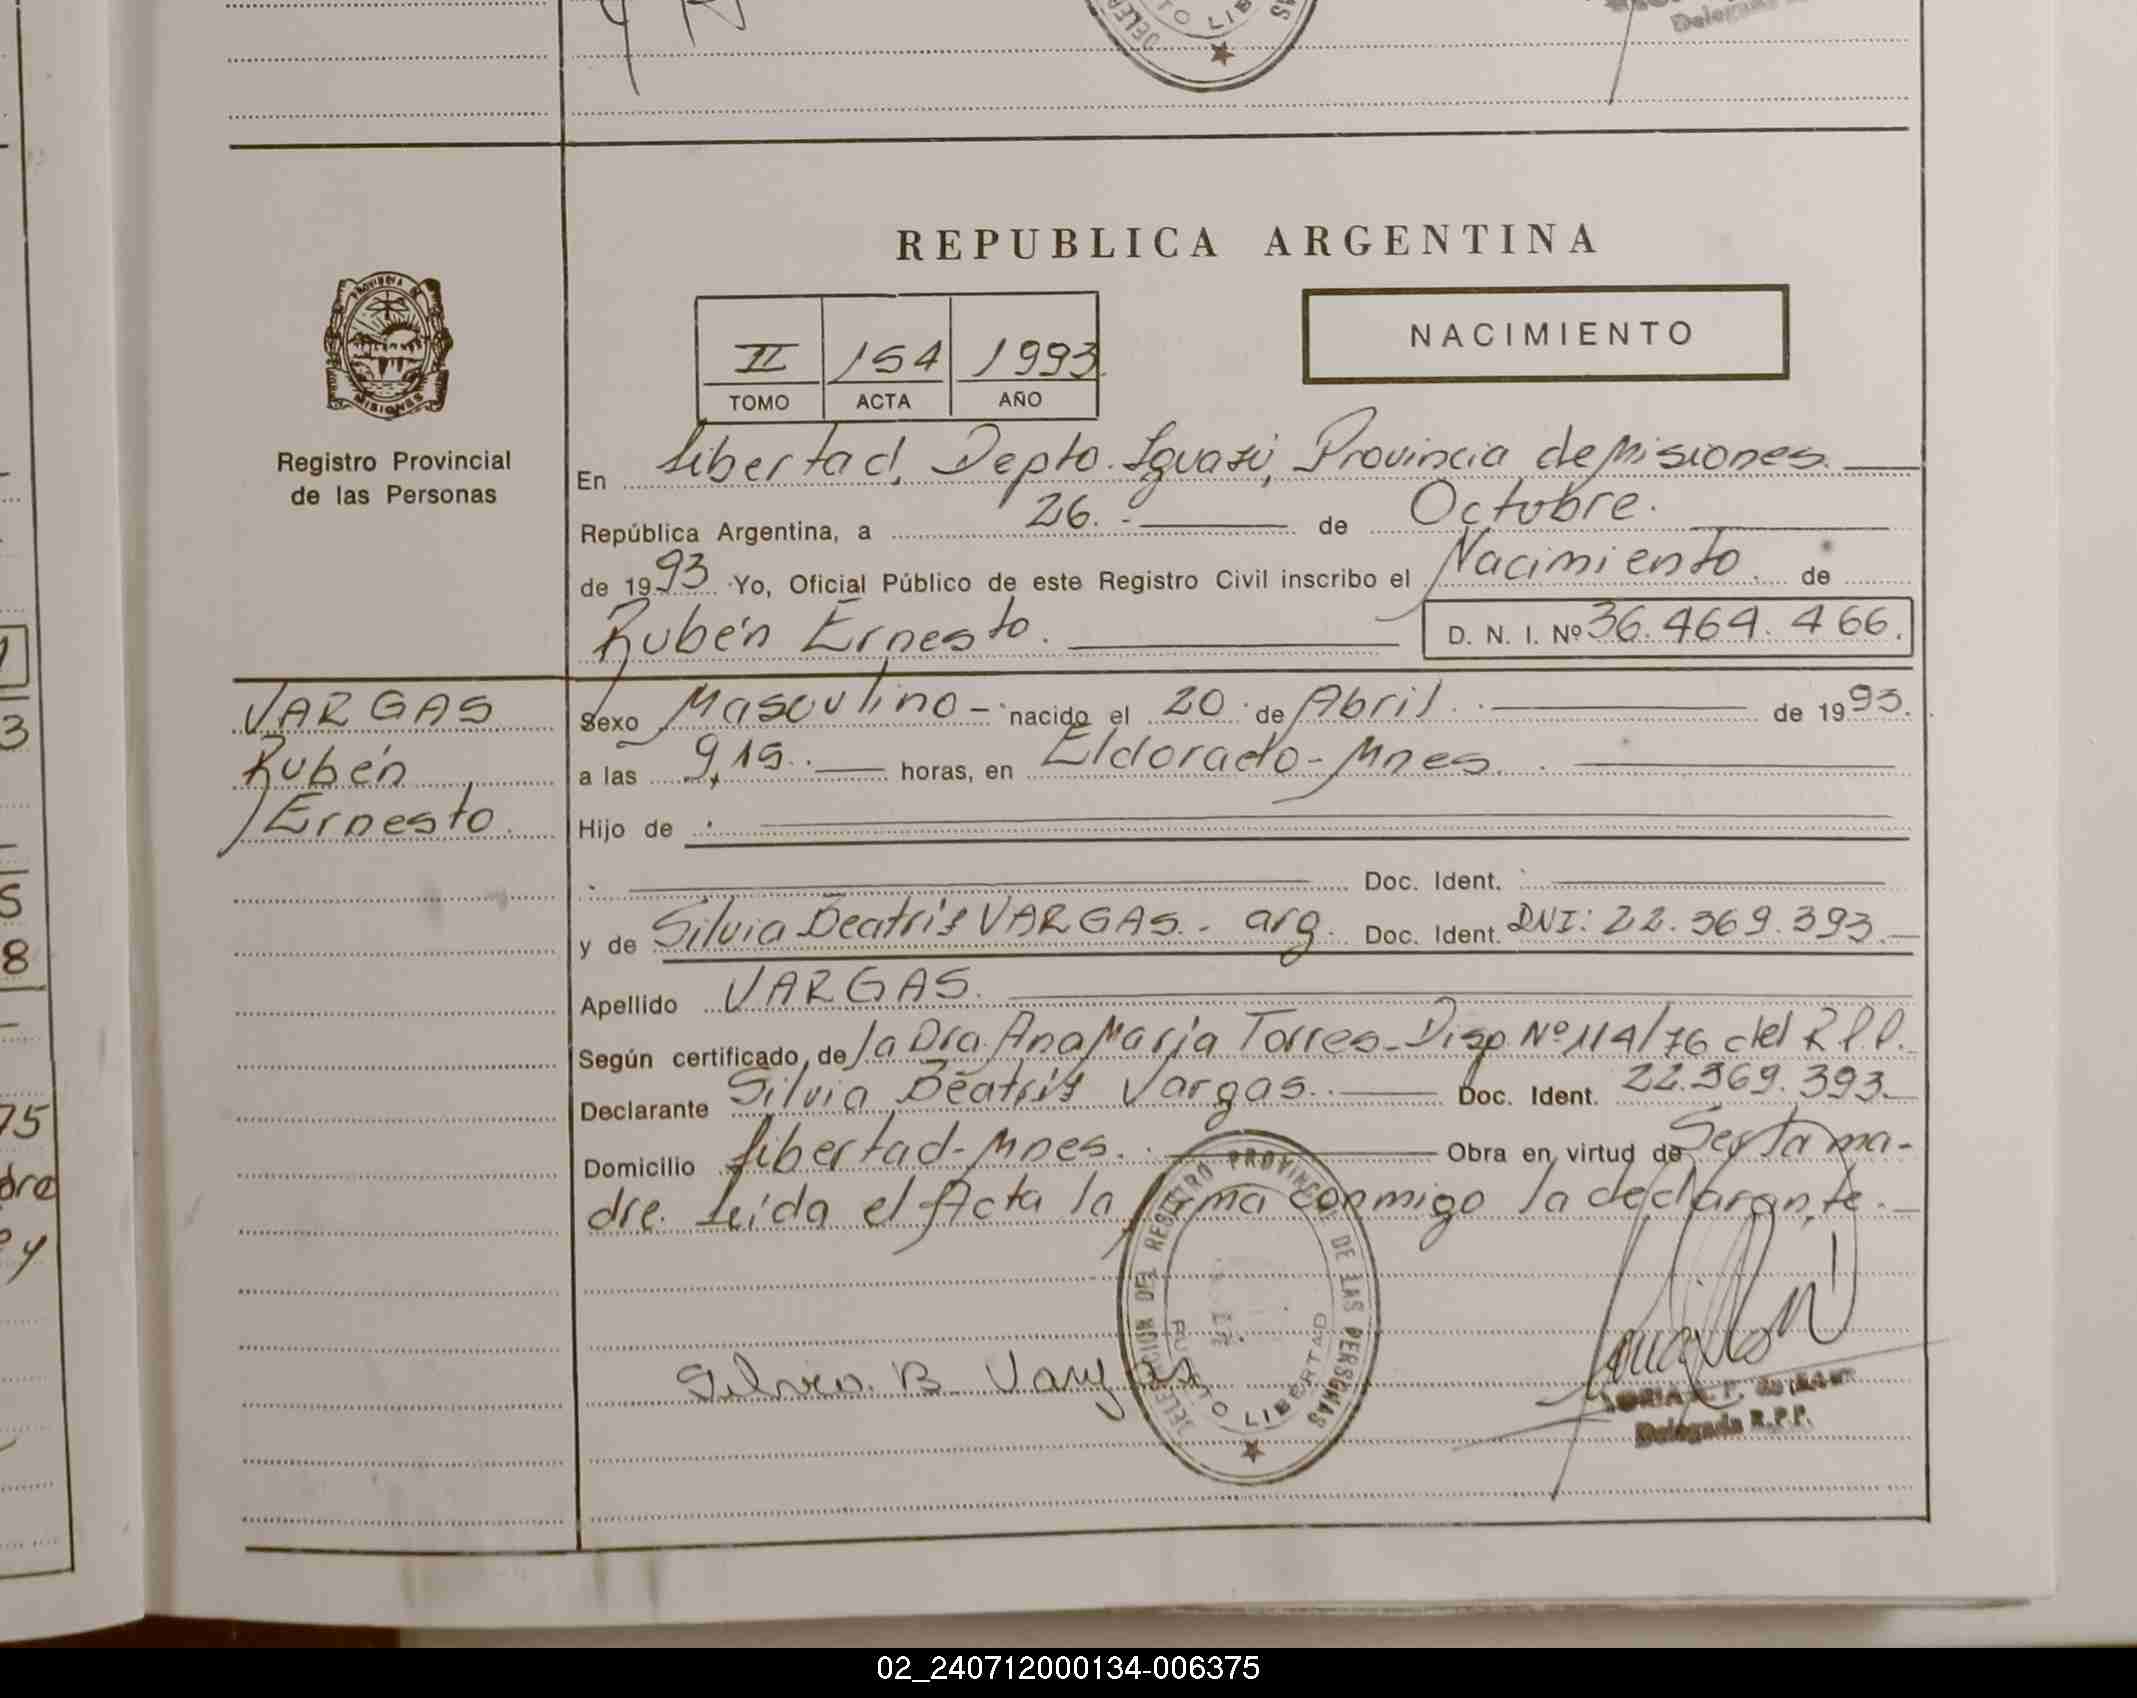 REPUBLICA ARGENTINA
PROVINCIA DE
MISIONES
Registro Provincial
de las Personas
II 154 1993.
TOMO ACTA AÑO
NACIMIENTO
En Libertad, Depto. Iguazú, Provincia de Misiones.
República Argentina, a 26. de Octubre.
de 1993 Yo, Oficial Público de este Registro Civil inscribo el Nacimiento. de
Rubén Ernesto. D. N. I. Nº 36.464.466.
VARGAS
Rubén
Ernesto.
Sexo Masculino - nacido el 20 de Abril. de 1993.
a las 9,15. horas, en Eldorado - Mnes.
Hijo de
Doc. Ident.
y de Silvia Beatriz VARGAS. - arg. Doc. Ident. DNI: 22.369.393.
Apellido VARGAS.
Según certificado, de la Dra. Ana María Torres - Disp. Nº 114/76 del R.P.P.
Declarante Silvia Beatriz Vargas. Doc. Ident. 22.369.393.
Domicilio Libertad - Mnes. Obra en virtud de Ser la ma-
dre. Leída el Acta la firma conmigo la declarante.
Silvia B Vargas
DELEGACION DEL REGISTRO PROVINCIAL DE LAS PERSONAS
PUERTO LIBERTAD
Delegada R.P.P.
02_240712000134-006375